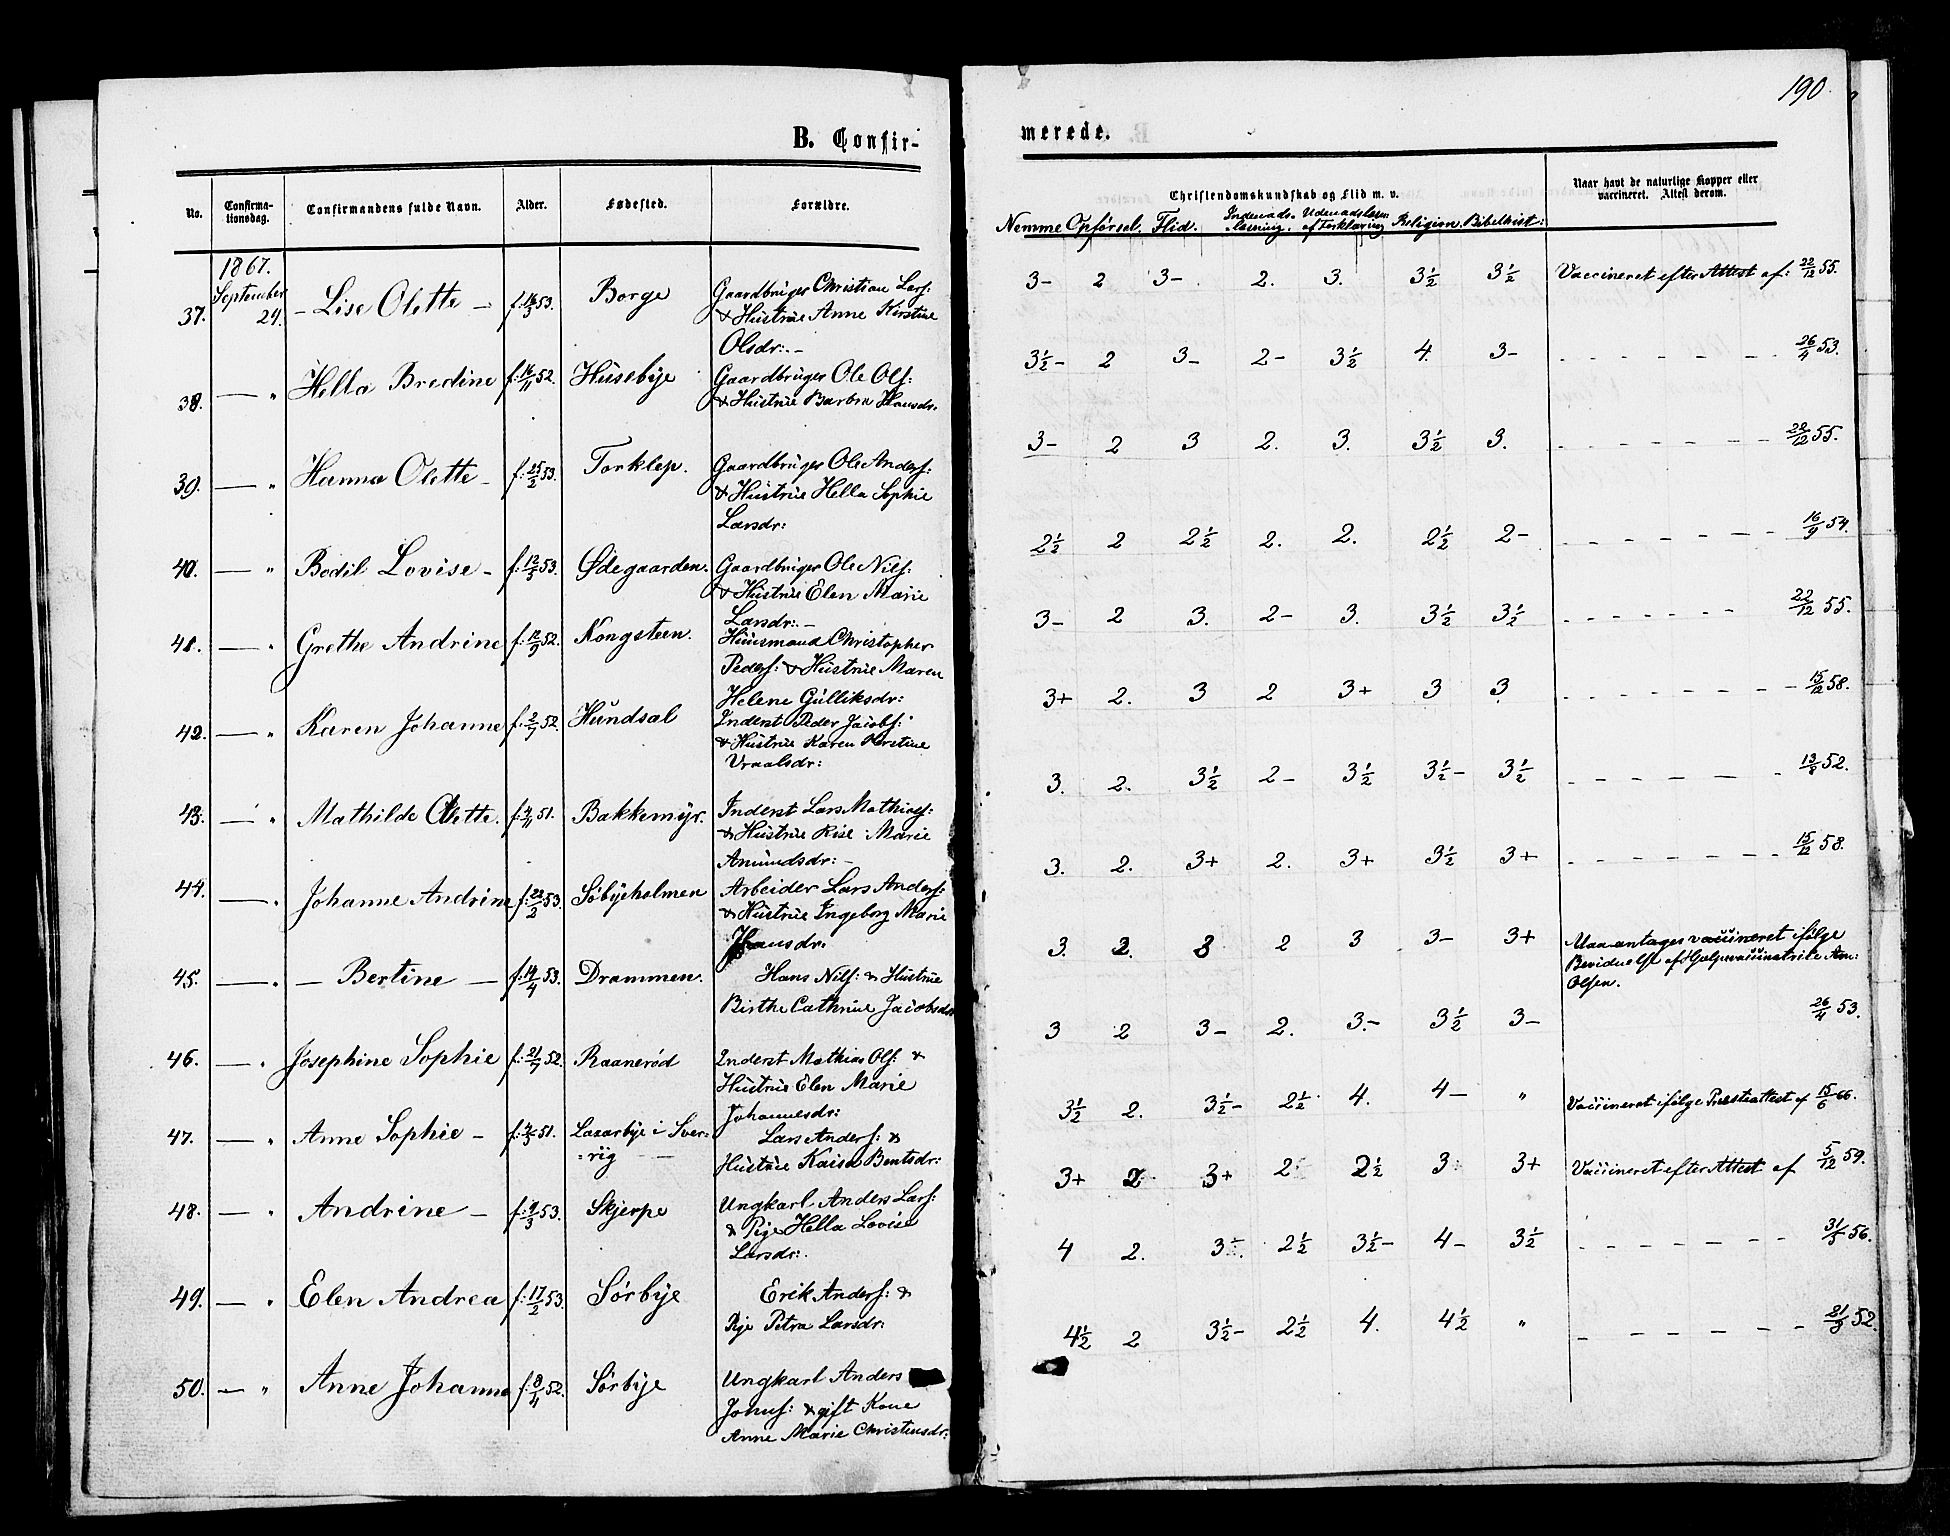 190
B. Confir-
merede.
No.
Confirma-
tionsdag.
Confirmandens fulde Navn.
Alder.
Fødested.
Forældre.
Christendomskundskab og Flid m. v.
Naar havt de naturlige Kopper eller
vaccineret. Attest derom.
Nemme Opførsel. Flid. Indenads- læsning. Udenadslæsn af Forklaring Religion. Bibelhist:
1867.
September 24.
37. - Lise Olette - f: 16/3 53. Borge Gaardbruger Christian Lars:
& Hustrue Anne Kirstine
Olsdr: -
3- 2 3- 2. 3. 3½ 3½ Vaccineret efter Attest af: 22/12 55.
38. — " Hella Bredine f: 16/11 52. Husebye Gaardbruger Ole Ols:
& Hustrue Barbra Hansdr.
3½- 2 3- 2- 3½ 4. 3- - - - - - - 26/4 53.
39. — " Hanna Olette - f: 25/2 53. Torklep. Gaardbruger Ole Anders:
& Hustrue Hella Sophie
Larsdr:
3- 2 3 2. 3. 3½ 3. - - - - - - 22/12 55.
40. — " Bodil Lovise - f: 12/3 53. Ødegaarden. Gaardbruger Ole Nils:
& Hustrue Elen Marie
Larsdr: -
2½ 2 2½ 2. 2. 2½ 2- - - - - - - 16/9 54.
41. — " Grethe Andrine f: 12/9 52. Kongsteen. Huusmand Christopher
Peders: & Hustrue Maren
Helene Gulliksdr:
3- 2 3. 2- 3. 3½ 3½ - - - - - - 22/12 55.
42. — " Karen Johanne f: 2/7 52. Hundsal Inderst Peder Jacobs:
& Hustrue Karen Kerstine
Vraalsdr:
3+ 2. 3 2 3+ 3 3 - - - - - - 15/12 58.
43. — " Mathilde Olette. f: 4/11 51. Bakkemyr. Inderst Lars Mathias:
& Hustrue Lise Marie
Amundsdr: -
3. 2. 3½ 2- 3½ 3½- 3½ - - - - - - 13/8 52.
44. — " Johanne Andrine f: 22/2 53. Søbyeholmen Arbeider Lars Anders:
& Hustrue Ingeborg Marie
Hansdr:
3. 2. 3+ 2. 3+ 3½ 3+ - - - - - - 15/12 58.
45. — " - Bertine - f: 14/4 53. Drammen. Hans Nils: & Hustrue
Birthe Cathrine Jacobsdr
3. 2. 3 2 3 3- 3+ Maa antages vaccineret ifølge
Bevidnelse af Hjælpevaccinatrice Am:
Olsen.
46. — " Josephine Sophie f: 21/7 52. Raanerød Inderst Mathias Ols: &
Hustrue Elen Marie
Johannesdr:
3 2 3- 2. 3.- 3½ 3- 26/4 53.
47. — " Anne Sophie - f: 4/3 51. Laxarbye i Sver-
:rig - - Lars Anders: &
Hustrue Kaisa Bentsdr:
3½ 2. 3½- 2½ 4. 4- " Vaccineret ifølge Præsteattest af 15/6 66.
48. — " Andrine - f: 9/3 53. Skjerpe Ungkarl Anders Lars:
& Pige Hella Lovise
Larsdr:
3+ 2 3+ 2 2½ 3 3+ Vaccineret efter Attest af 5/12 59.
49. — " Elen Andrea f: 17/2 53. Sørbye Erik Anders: &
Pige Petra Larsdr:
4 2. 3½ 2½ 3½- 4- 3½ - - - - - - 31/5 56.
50. — " Anne Johanne f: 8/11 52. Sørbye Ungkarl Anders
Johns: & gift Kone
Anne Marie Christensdr:
4½ 2 3½- 2½ 4. 4½ " - - - - - - 21/8 52.